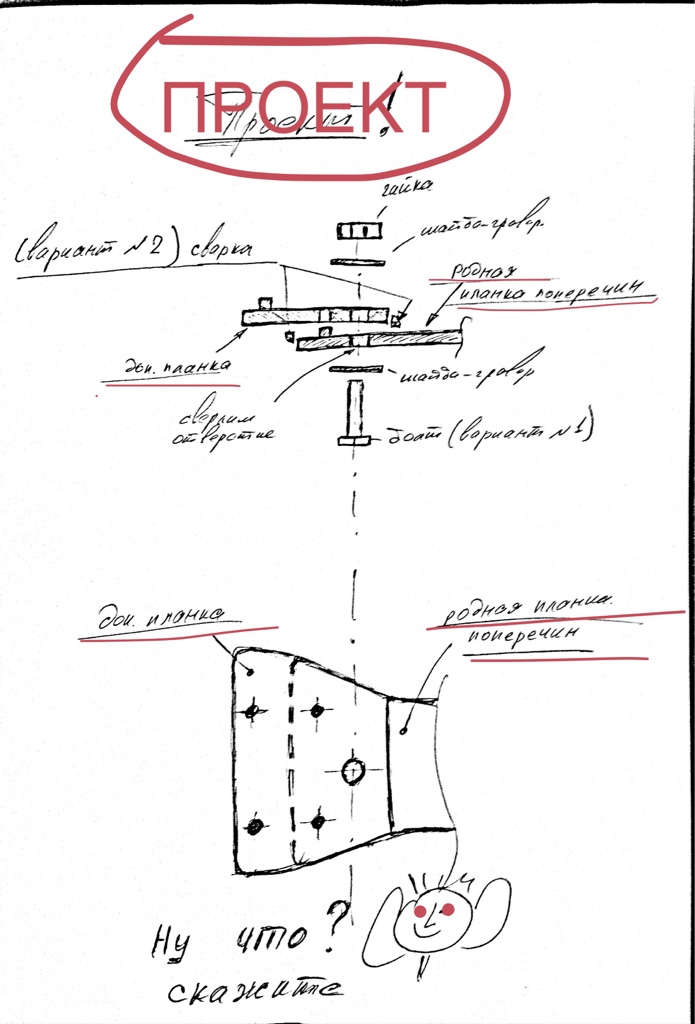 ПРОЕКТ
Проект!
гайка
шайба-гровер.
(вариант №2) сварка
родная
планка поперечин
доп. планка
шайба-гровер
сверлим
отверстие
болт (вариант №1)
доп. планка
родная планка.
поперечин
Ну что?
скажите